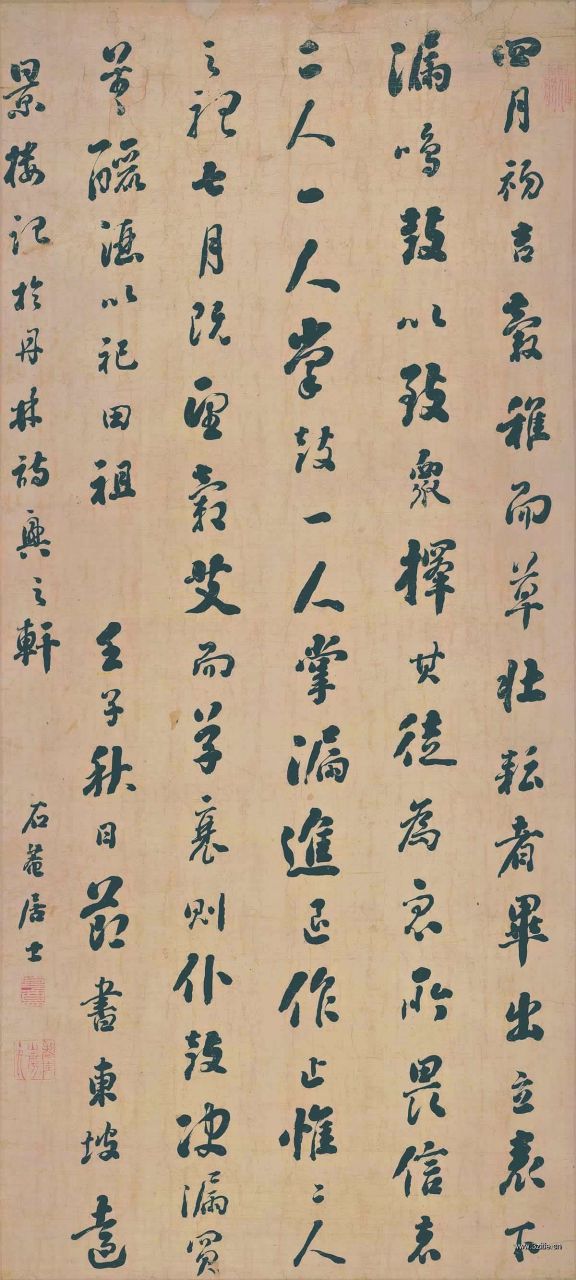 四月初吉穀稚而草壯耘者畢出立表下
漏鳴鼓以致眾擇其徒為眾所畏信者
二人一人掌鼓一人掌漏進退作止惟二人
之聽七月既望穀艾而草衰則仆鼓決漏買
以祀田祖 壬子秋日節書東坡遠
景樓記於丹林詩興之軒 石菴居士